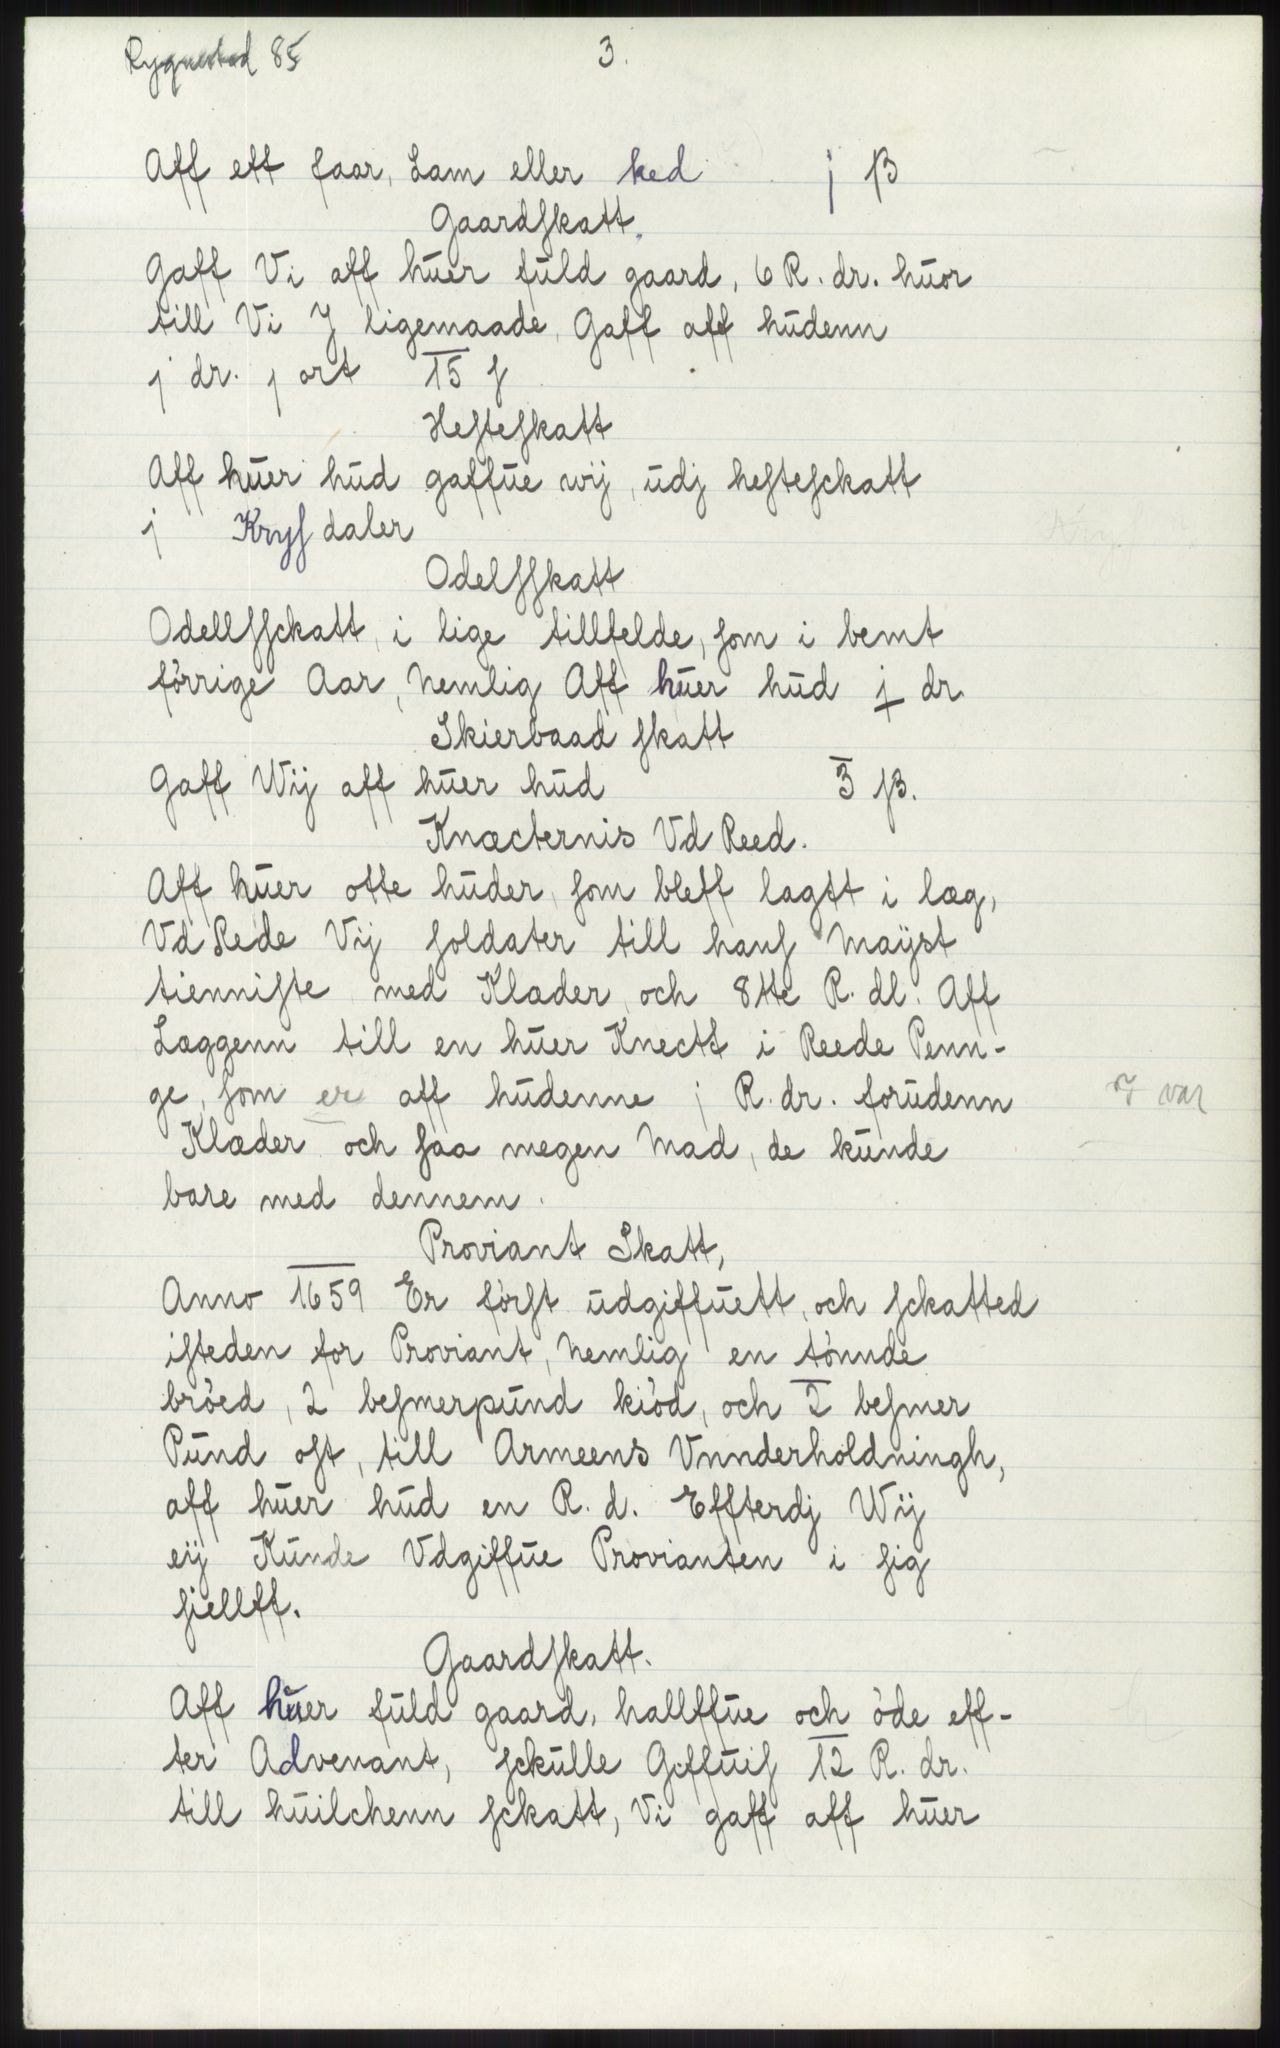 Rygnestad 85
3.
Aff ett faar, Lam eller ked j ß
Gaardſkatt.
Gaff Vi aff hŭer fŭld gaard, 6 R. dr. hŭor
till Vi J ligemaade, Gaff aff hŭdenn
j dr. j ort 15 ſ
Heſteſkatt
Aff hŭer hŭd gaffŭe wij, ŭdj heſteſckatt
j Kryſ daler
Odelſſkatt
Odellſſckatt, i lige tillfelde, ſom i bemt
förrige Aar, Nemlig Aff hŭer hŭd j dr
Skierbaad ſkatt
Gaff Wij aff hŭer hŭd 3 ß.
Knæcternis Vd Reed.
Aff hŭer otte hŭder, ſom bleff lagtt i læg,
Vd Rede Vij ſoldater till hanſ Maÿst
tienniſte med Klæder, och 8tte R. dl. Aff
Læggenn till en hŭer Knectt i Reede Penn-
ge, ſom er aff hŭdenne j R. dr. forŭdenn
Klæder och ſaa megen Mad, de kŭnde
bære med dennem.
Proviant Skatt,
Anno 1659 Er förſt ŭdgiffŭett, och ſckatted
iſteden for Proviant, Nemlig en tönnde
bröed, 2 beſmerpŭnd kiöd, och 2 beſmer
Pŭnd oſt, till Armeens Vnnderholdningh,
aff hŭer hŭd en R. d. Effterdj Wij
eÿ Kŭnde Vdgiffŭe Provianten i ſig
ſiellff.
Gaardſkatt.
Aff hŭer fŭld gaard, hallffŭe och öde eff-
ter Advenant, ſckŭlle Geffŭiſ 12 R. dr.
till hŭilchenn ſckatt, Vi gaff aff hŭer